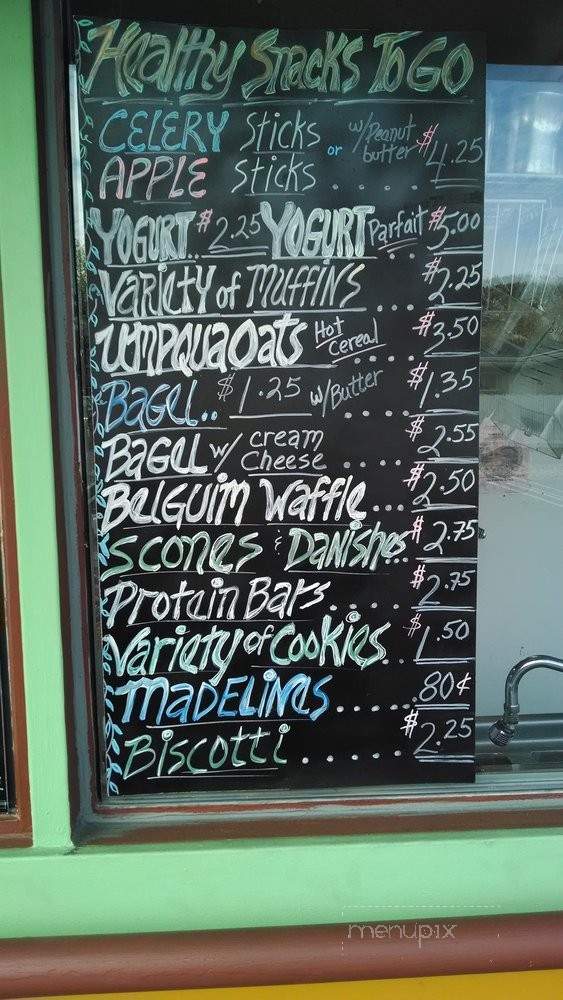 Healthy Snacks To Go
CELERY Sticks or w/Peanut butter $4.25
APPLE Sticks ....
YOGURT.. $2.25 YOGURT Parfait $5.00
Variety of MUFFINS ... $2.25
UMPQUA Oats Hot Cereal .... $3.50
BAGEL.. $1.25 w/Butter .... $1.35
BAGEL w/ cream cheese .... $2.55
BELGUIM Waffle... $2.50
Scones & Danishes $2.75
Protein Bars.... $2.75
Variety of Cookies.. $1.50
MADELINES..... 80¢
Biscotti .... $2.25
menupix